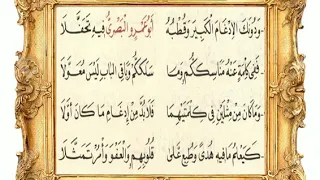 -وَدُونَكَ الِادْغَامَ الْكَبِيرَ وَقُطْبُهُ أَبُو عَمْرٍو الْبَصْرِيُّ فِيهِ تَحَفَّلَا
-فَفِي كِلْمَةٍ عَنْهُ مَنَاسِكَكُّمْ وَمَا سَلَكَكُّمْ وَبَاقِي الْبَابِ لَيْسَ مُعَوَّلَا
-وَمَا كَانَ مِنْ مِثْلَيْنِ فِي كِلْمَتَيْهِمَا فَلَابُدَّ مِنْ إِدْغَامِ مَا كَانَ أَوَّلَا
-كَيَعْلَمُ مَا فِيهِ هُدًى وَطُبِعْ عَلَى قُلُوبِهِمُ وَالْعَفْوَ وَأْمُرْ تَمَثَّلَا